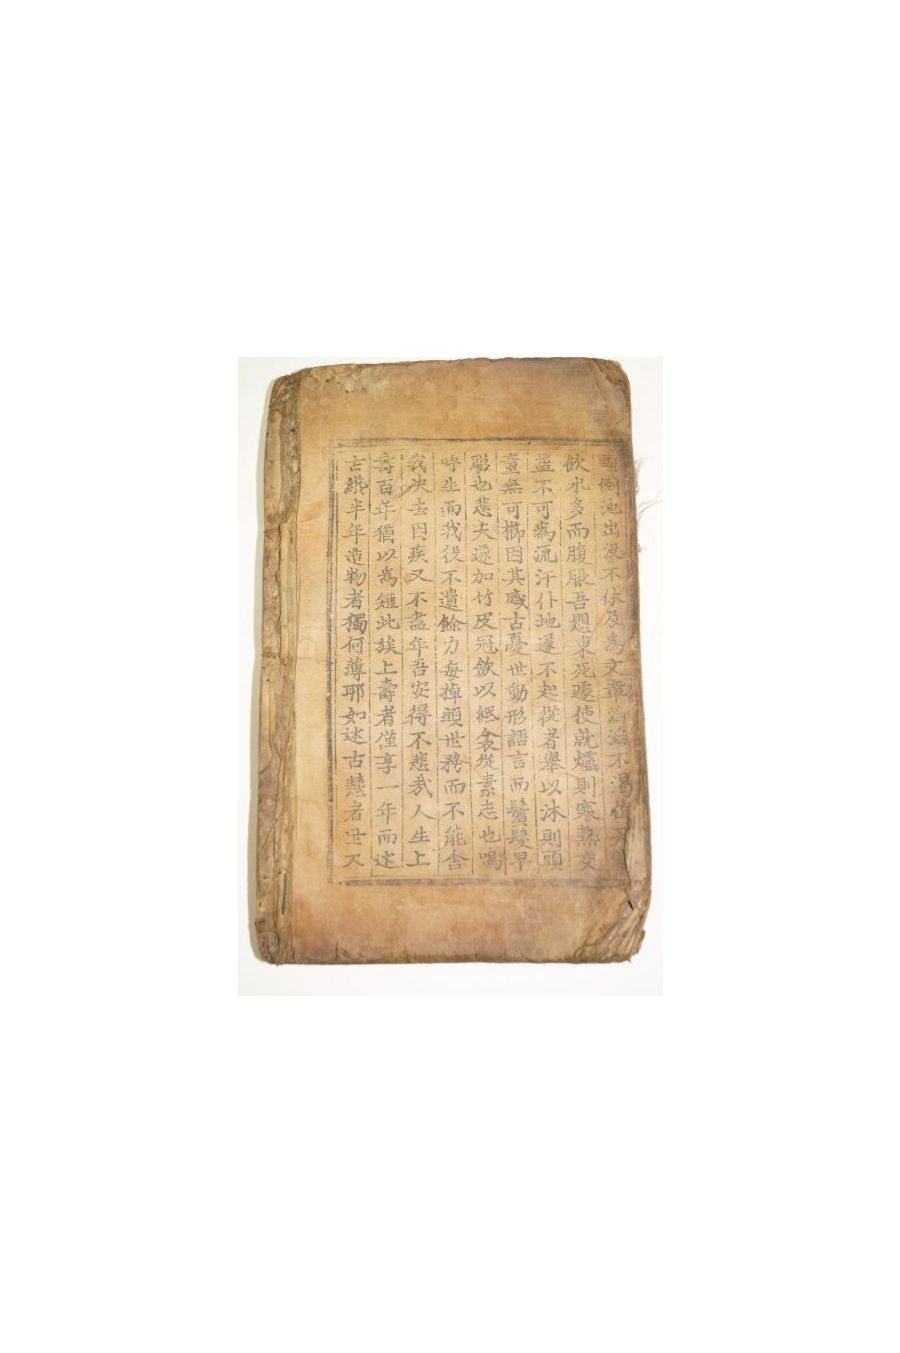 倒池出沒不休及爲文章滔滔不渴
飲水多而腹脹吾懸東死遽使就爐則寒熱交
益不可爲流汗仆地遂不起從者舉以沐則頭
童無可櫛因其感古憂世動形語言而鬢髮早
凋也悲夫遂加竹皮冠斂以紙衾從素志也嗚
呼生而我役不遺餘力每掉頭世務而不能舍
我決去因疾又不盡年吾安得不悲哉人生上
壽百年猶以爲短此族上壽者僅享一年而述
古纔半年造物者獨何薄耶如述古慧者世又